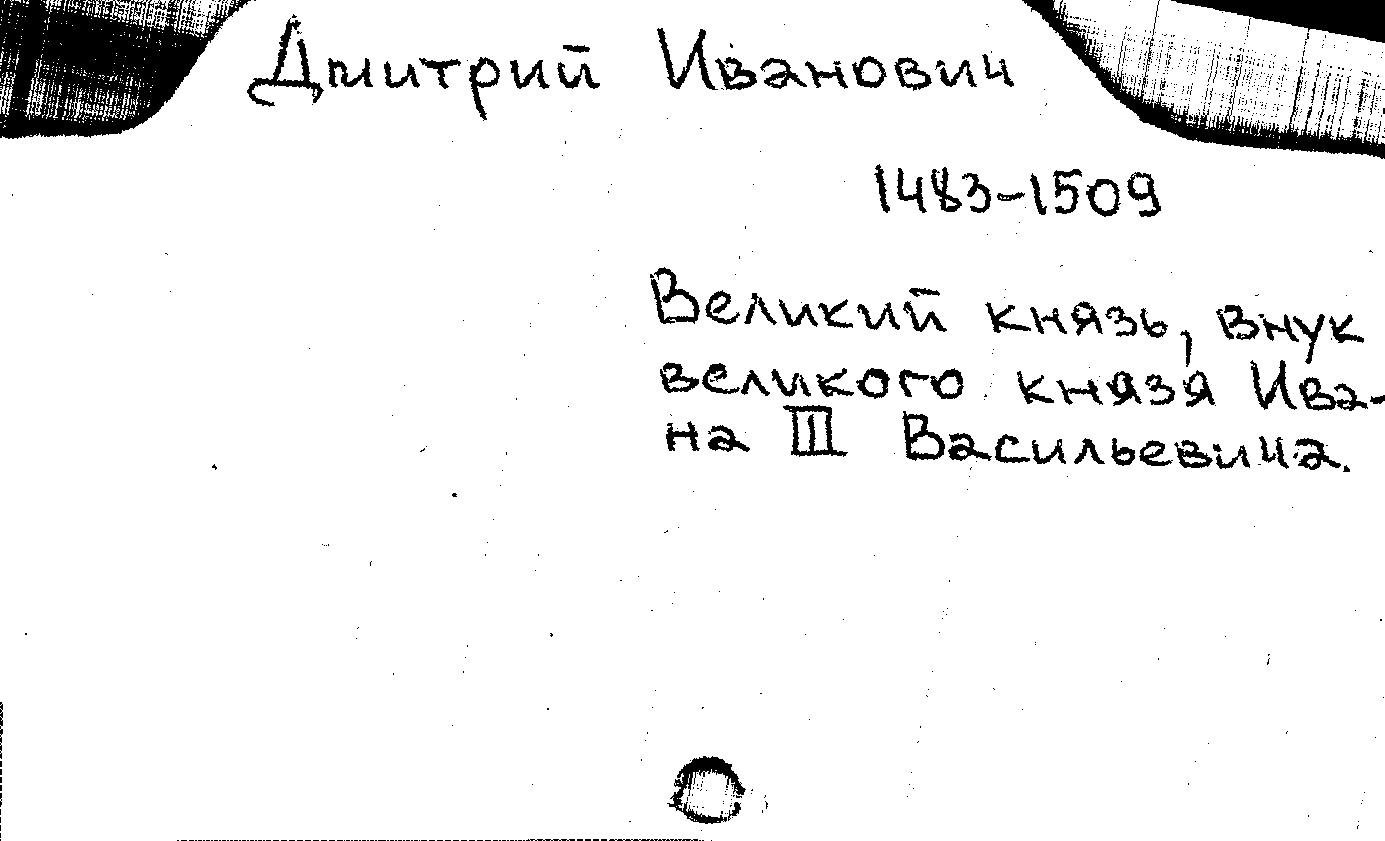 Дмитрий Иванович
1483-1509
Великий князь, внук
великого князя Ива-
на III Васильевича.